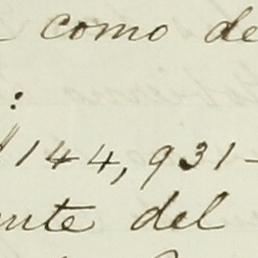 como de
:
144,931-
nte del